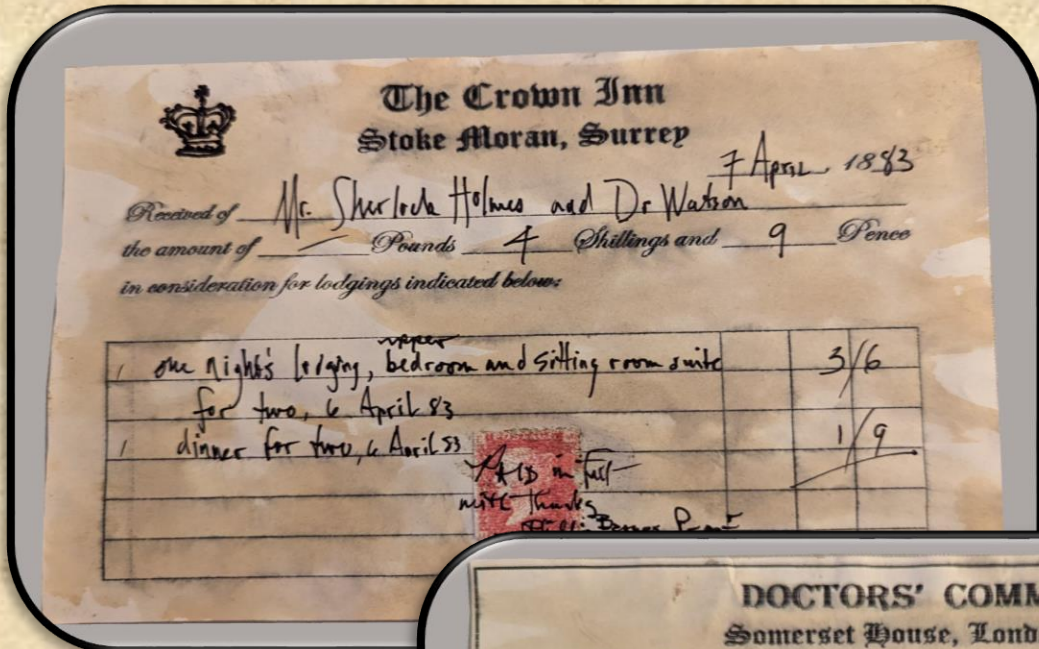 The Crown Inn
Stoke Moran, Surrey
7 April 1883
Received of Mr. Sherlock Holmes and Dr Watson
the amount of — Pounds 4 Shillings and 9 Pence
in consideration for lodgings indicated below:
upper
1 one night's lodging, bedroom and sitting room suite 3/6
for two, 6 April 83
1 dinner for two, 6 April 83 1/9
PAID in full
with thanks
DOCTORS' COMM
Somerset House, Lond